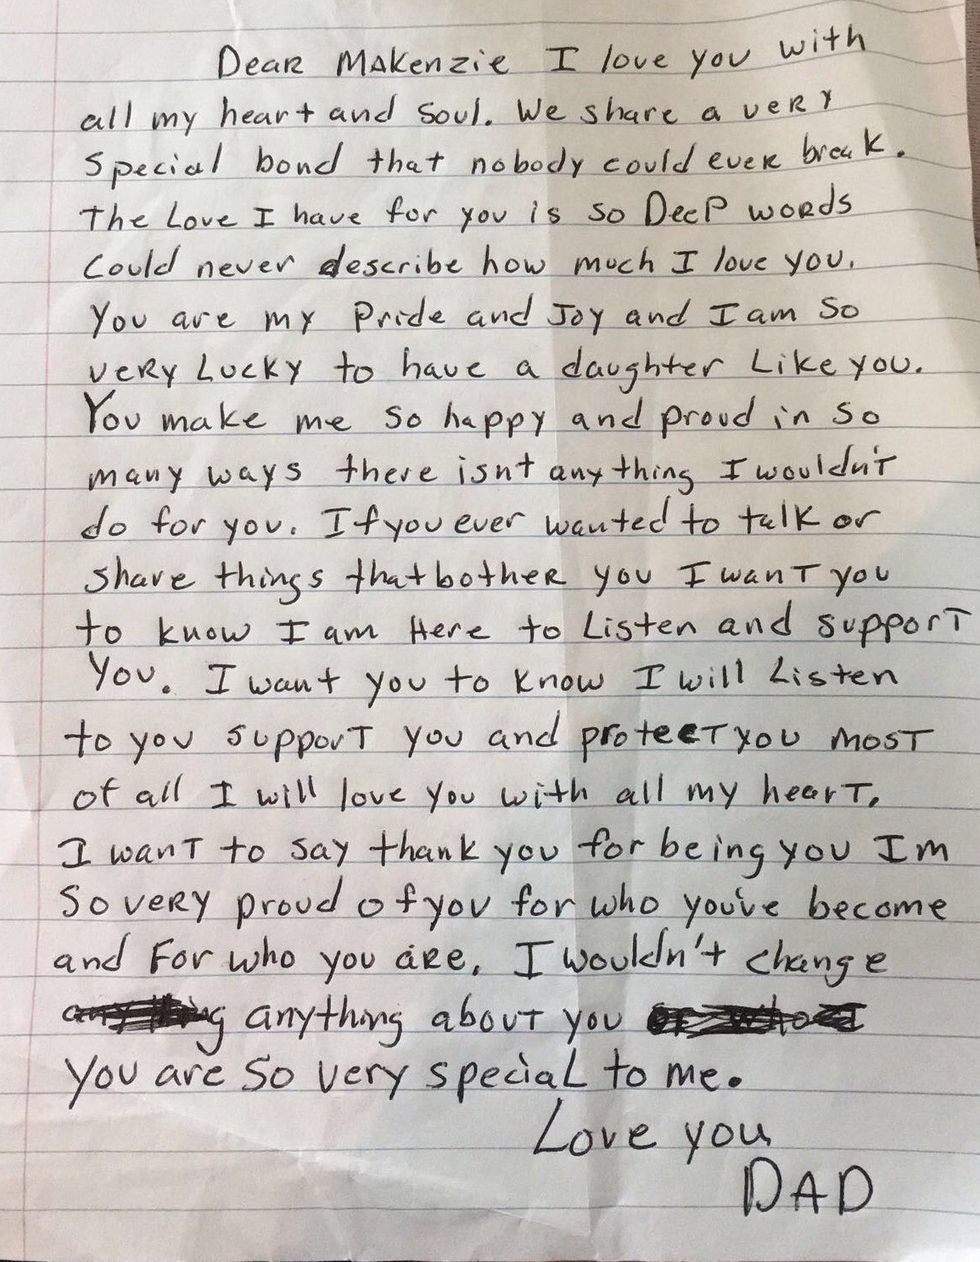 Dear Makenzie I love you with
all my heart and soul. We share a very
special bond that nobody could ever break.
The Love I have for you is so Deep words
Could never describe how much I love you.
You are my Pride and Joy and I am So
very Lucky to have a daughter Like you.
You make me so happy and proud in so
many ways there isnt anything I wouldn't
do for you. If you ever wanted to talk or
share things that bother you I want you
to know I am Here to Listen and support
You. I want you to know I will Listen
to you support you and protect you most
of all I will love you with all my heart.
I want to say thank you for being you Im
So very proud of you for who you've become
and For who you are. I wouldn't change
anything anything about you
You are so very special to me.
Love you
DAD